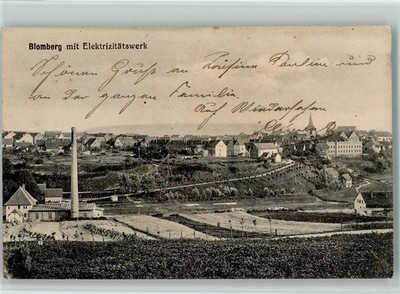 Blomberg mit Elektrizitätswerk
Schönen Gruß an Pauline und
von der ganzen Familie
Auf Wiedersehen